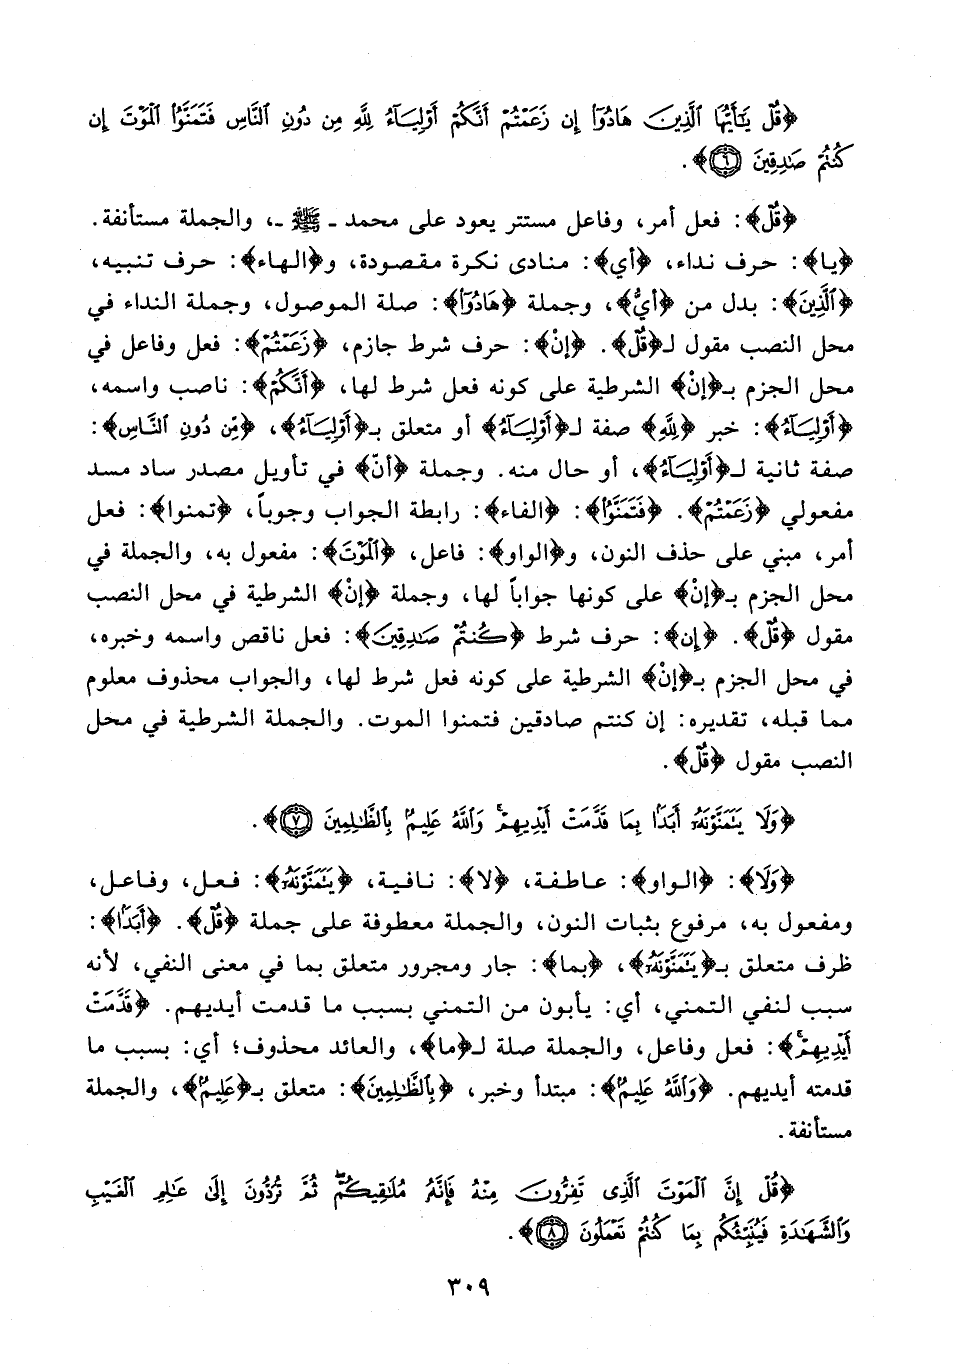 ﴿قُلْ يَٰٓأَيُّهَا ٱلَّذِينَ هَادُوٓا۟ إِن زَعَمْتُمْ أَنَّكُمْ أَوْلِيَآءُ لِلَّهِ مِن دُونِ ٱلنَّاسِ فَتَمَنَّوُا۟ ٱلْمَوْتَ إِن
كُنتُمْ صَٰدِقِينَ ٦﴾.
﴿قُلْ﴾: فعل أمر، وفاعل مستتر يعود على محمد ـ ﷺ ـ، والجملة مستأنفة.
﴿يا﴾: حرف نداء، ﴿أي﴾: منادى نكرة مقصودة، و﴿الهاء﴾: حرف تنبيه،
﴿ٱلَّذِينَ﴾: بدل من ﴿أيُّ﴾، وجملة ﴿هَادُوٓا۟﴾: صلة الموصول، وجملة النداء في
محل النصب مقول لـ﴿قُلْ﴾. ﴿إنْ﴾: حرف شرط جازم، ﴿زَعَمْتُمْ﴾: فعل وفاعل في
محل الجزم بـ﴿إنْ﴾ الشرطية على كونه فعل شرط لها، ﴿أَنَّكُمْ﴾: ناصب واسمه،
﴿أَوْلِيَآءُ﴾: خبر ﴿لِلَّهِ﴾ صفة لـ﴿أَوْلِيَآءُ﴾ أو متعلق بـ﴿أَوْلِيَآءُ﴾، ﴿مِّن دُونِ ٱلنَّاسِ﴾:
صفة ثانية لـ﴿أَوْلِيَآءُ﴾، أو حال منه. وجملة ﴿أنّ﴾ في تأويل مصدر ساد مسد
مفعولي ﴿زَعَمْتُمْ﴾. ﴿فَتَمَنَّوُا۟﴾: ﴿الفاء﴾: رابطة الجواب وجوباً، ﴿تمنوا﴾: فعل
أمر، مبني على حذف النون، و﴿الواو﴾: فاعل، ﴿ٱلْمَوْتَ﴾: مفعول به، والجملة في
محل الجزم بـ﴿إنْ﴾ على كونها جواباً لها، وجملة ﴿إنْ﴾ الشرطية في محل النصب
مقول ﴿قُلْ﴾. ﴿إن﴾: حرف شرط ﴿كُنتُمْ صَٰدِقِينَ﴾: فعل ناقص واسمه وخبره،
في محل الجزم بـ﴿إنْ﴾ الشرطية على كونه فعل شرط لها، والجواب محذوف معلوم
مما قبله، تقديره: إن كنتم صادقين فتمنوا الموت. والجملة الشرطية في محل
النصب مقول ﴿قُلْ﴾.
﴿وَلَا يَتَمَنَّوْنَهُۥٓ أَبَدًۢا بِمَا قَدَّمَتْ أَيْدِيهِمْ ۚ وَٱللَّهُ عَلِيمٌۢ بِٱلظَّٰلِمِينَ ٧﴾.
﴿وَلَا﴾: ﴿الواو﴾: عاطفة، ﴿لا﴾: نافية، ﴿يَتَمَنَّوْنَهُۥ﴾: فعل، وفاعل،
ومفعول به، مرفوع بثبات النون، والجملة معطوفة على جملة ﴿قُلْ﴾. ﴿أَبَدًۢا﴾:
ظرف متعلق بـ﴿يَتَمَنَّوْنَهُۥ﴾، ﴿بما﴾: جار ومجرور متعلق بما في معنى النفي، لأنه
سبب لنفي التمني، أي: يأبون من التمني بسبب ما قدمت أيديهم. ﴿قَدَّمَتْ
أَيْدِيهِمْ ۚ﴾: فعل وفاعل، والجملة صلة لـ﴿ما﴾، والعائد محذوف؛ أي: بسبب ما
قدمته أيديهم. ﴿وَٱللَّهُ عَلِيمٌۢ﴾: مبتدأ وخبر، ﴿بِٱلظَّٰلِمِينَ﴾: متعلق بـ﴿عَلِيمٌۢ﴾، والجملة
مستأنفة.
﴿قُلْ إِنَّ ٱلْمَوْتَ ٱلَّذِى تَفِرُّونَ مِنْهُ فَإِنَّهُۥ مُلَٰقِيكُمْ ۖ ثُمَّ تُرَدُّونَ إِلَىٰ عَٰلِمِ ٱلْغَيْبِ
وَٱلشَّهَٰدَةِ فَيُنَبِّئُكُم بِمَا كُنتُمْ تَعْمَلُونَ ٨﴾.
٣٠٩